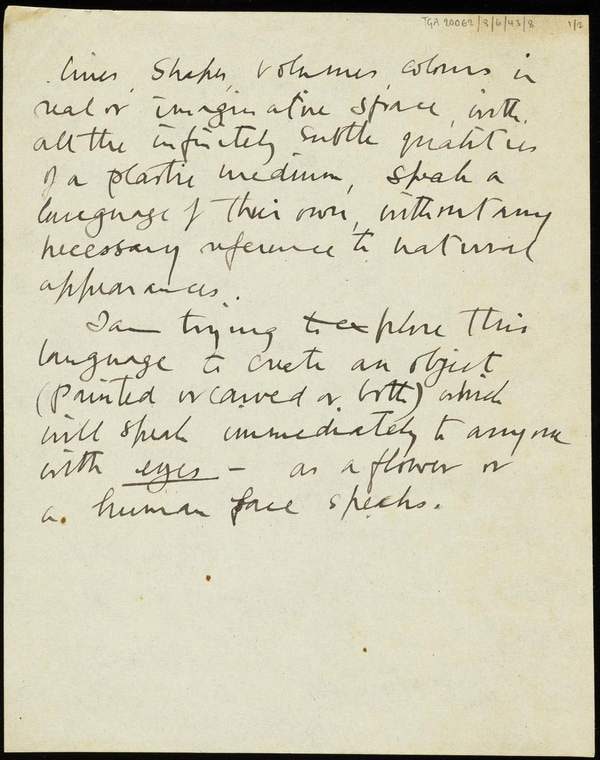 TGA 20062/3/6/43/8 1/2
lines, shapes, volumes, colours in
real or imaginative space, with
all the infinitely subtle qualities
of a plastic medium, speak a
language of their own, without any
necessary reference to natural
appearances.
I am trying to explore this
language to create an object
(painted or carved or both) which
will speak immediately to anyone
with eyes – as a flower or
a human face speaks.